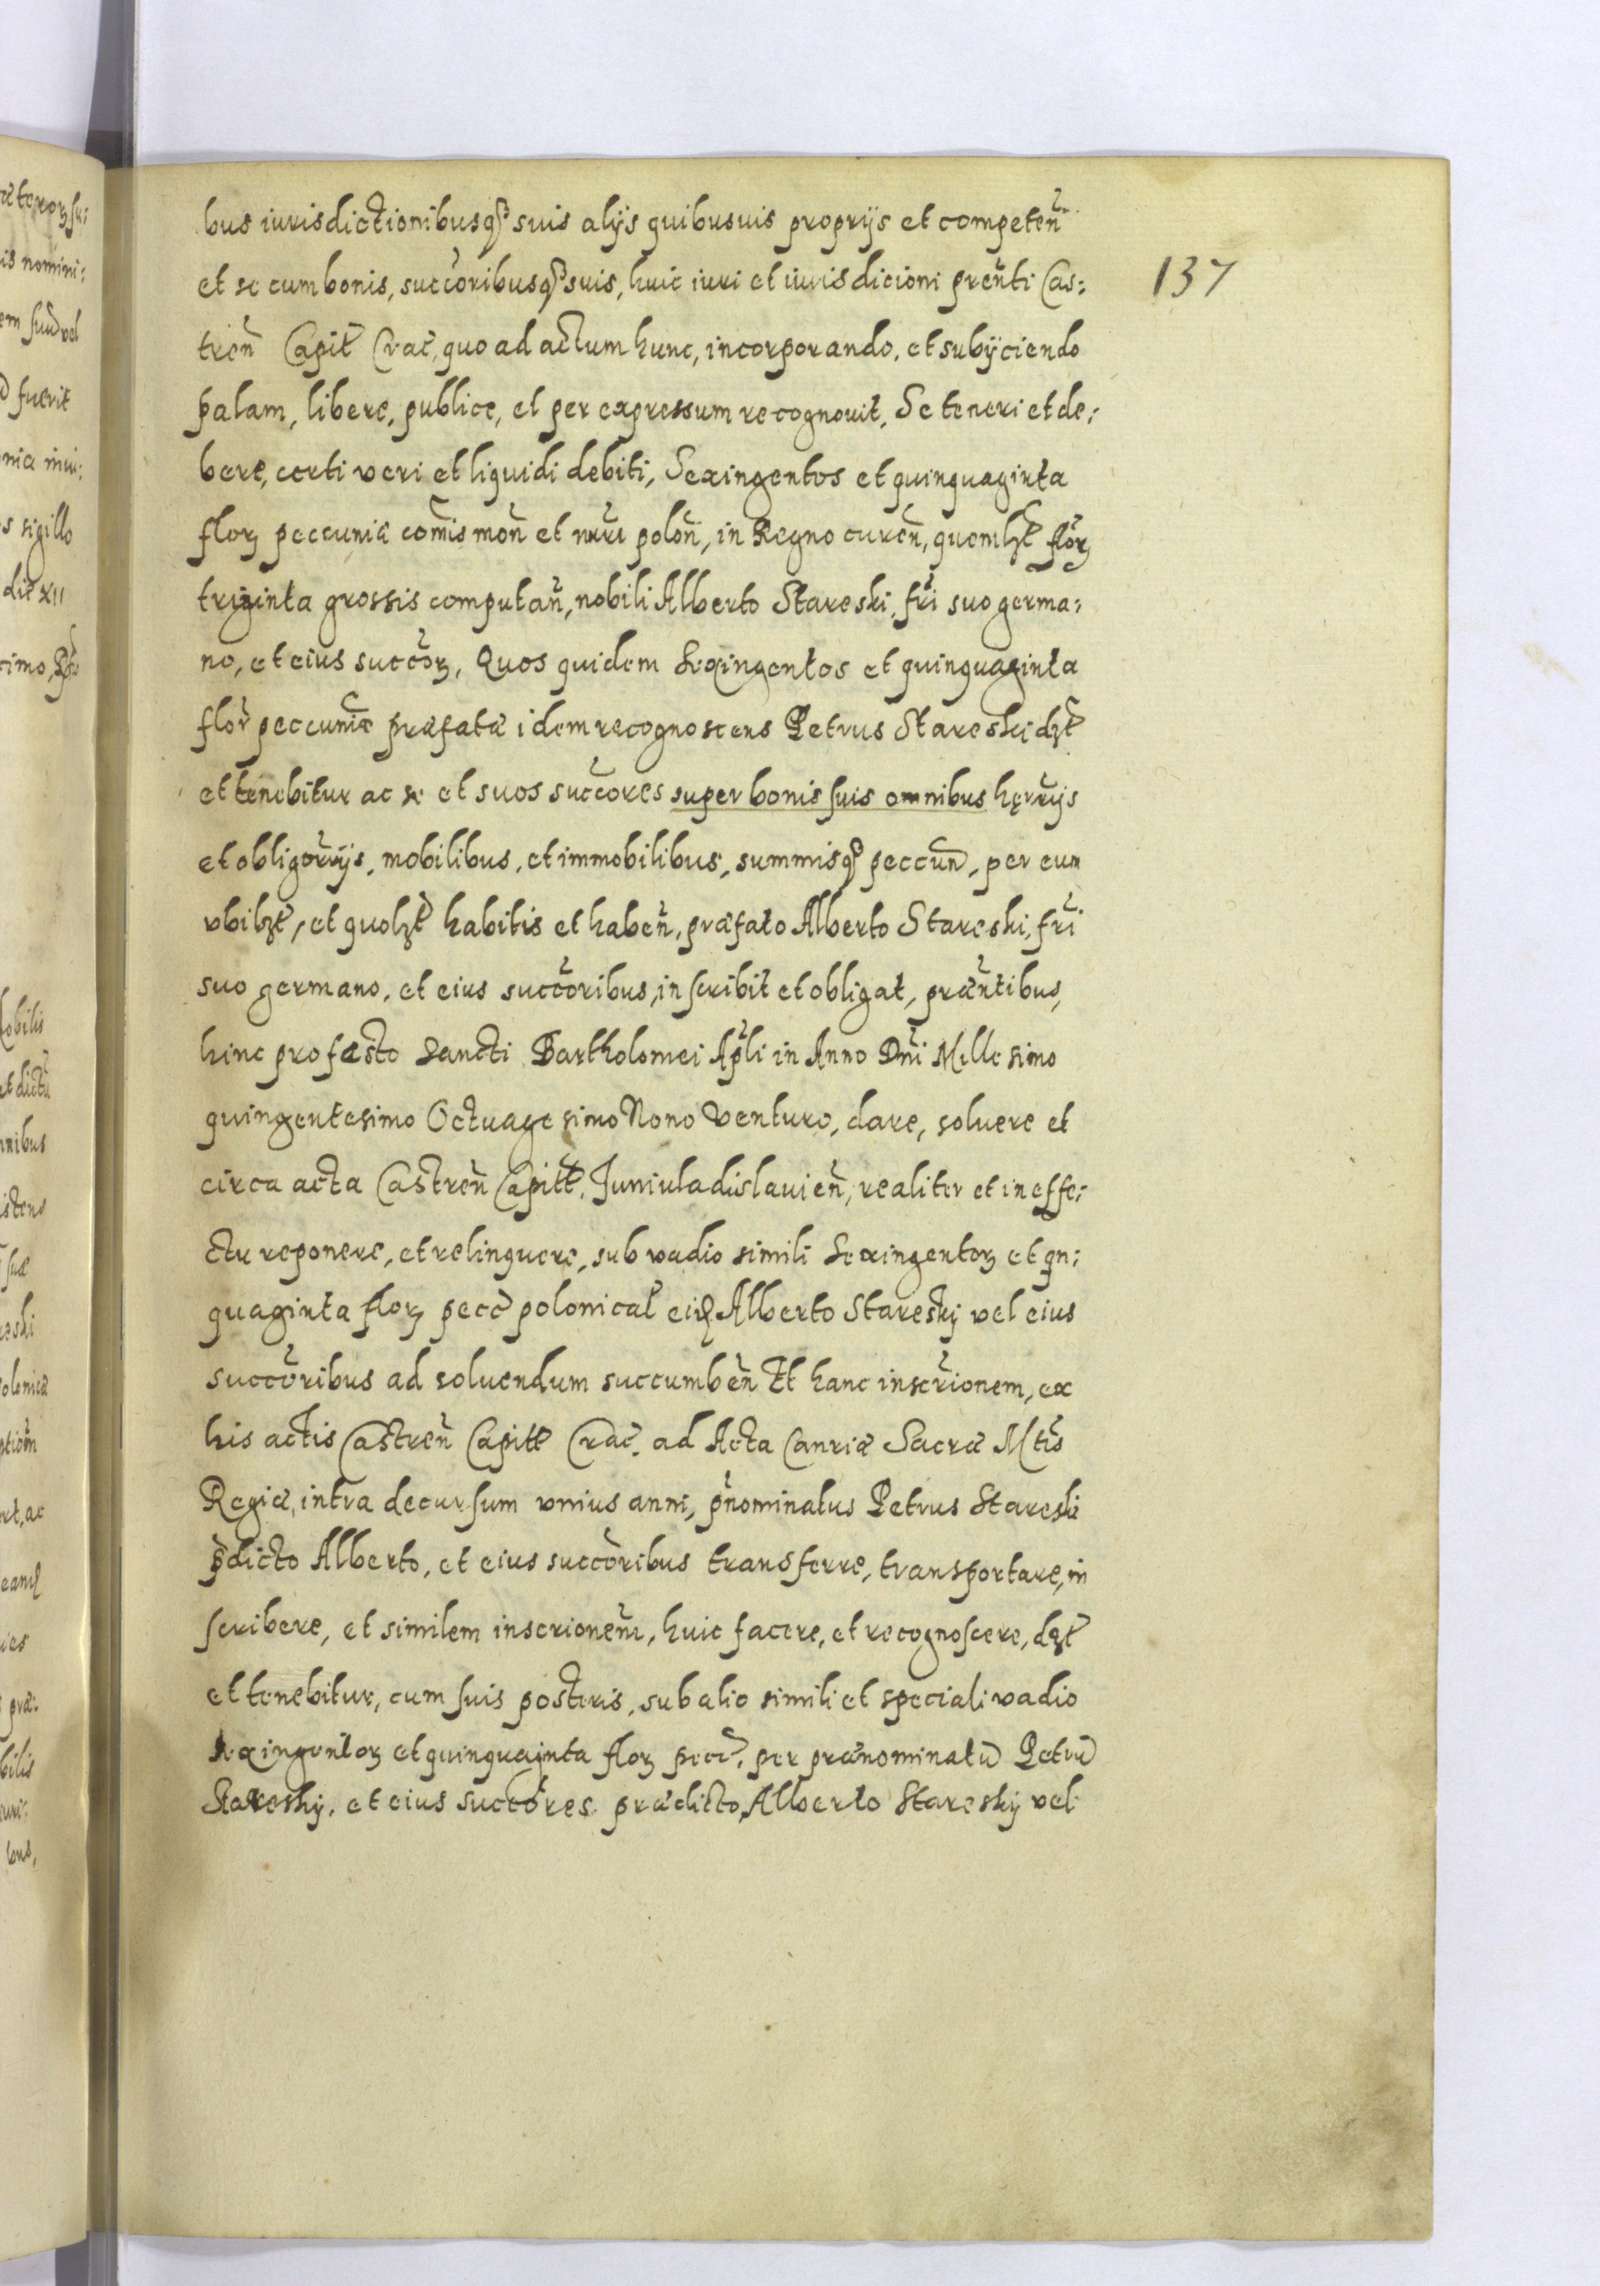 bus iurisdictionibusqꝫ suis alijs quibusuis proprijs et competen̄
et se cum bonis, succoribusqꝫ suis, huic iuri et iurisdicioni prēnti Cas:
137
tren̄ Capit̄ Crac̄, quo ad actum hunc, incorporando, et subijciendo
palam, libere, publice, et per expressum recognouit, Se teneri et de:
bere, certi veri et liquidi debiti, Sexingentos et quinquaginta
florꝫ peccuniæ com̄is mon̄ et nr̄i polon̄, in Regno curen̄, quemlꝫt florꝫ
triginta grossis computan̄, nobili Alberto Stareski, fr̄i suo germa:
no, et eius succorꝫ, Quos quidem sexingentos et quinquaginta
flor̄ peccuniæ præfatæ idem recognoscens Petrus Stareski dꝫt
et tenebitur ac se et suos succores super bonis suis omnibus hęrrijs
et obligorijs, mobilibus, et immobilibus, summisqꝫ peccun̄, per eum
vbilꝫt, et quolꝫt habitis et haben̄, præfato Alberto Stareski, fr̄i
suo germano, et eius succoribus, inscribit et obligat, præntibus,
hinc pro fæsto Sancti Bartholomei Apl̄i in Anno Dn̄i Millesimo
quingentesimo Octuagesimo Nono Venturo, dare, soluere et
circa acta Castren̄ Capitł. Juniuladislauien̄, realiter et in effe:
ctu reponere, et relinquere, sub vadio simili sexingentorꝫ et qn:
quaginta florꝫ pecc̄ polonical̄ eidꝫ Alberto Staresky vel eius
succoribus ad soluendum succumben̄ Et hanc inscrionem, ex
his actis Castren̄ Capitł Crac̄. ad Acta Canriæ Sacræ Mtis
Regiæ, intra decursum vnius anni, p̄nominatus Petrus Stareski
p̄dicto Alberto, et eius succoribus transferre, transportare, in
scribere, et similem inscrionem, huic facere, et recognoscere, dꝫt
et tenebitur, cum suis posteris, sub alio simili et speciali vadio
sexingentorꝫ et quinquainta florꝫ pecc̄, per prænominatū Petrū
Staresky, et eius succores prædicto Alberto Staresky vel